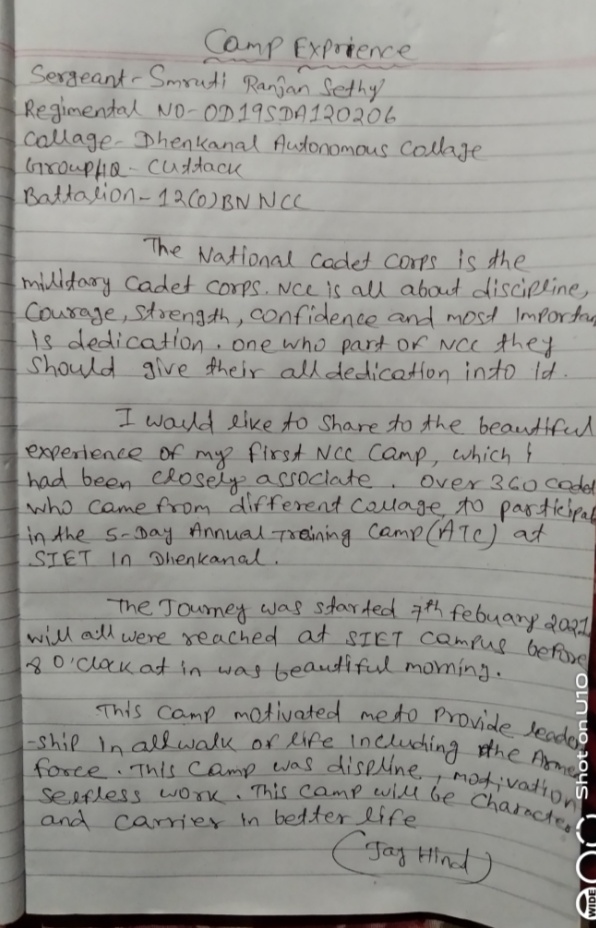 Camp Exprience
Sergeant - Smruti Ranjan Sethy
Regimental NO - OD19SDA120206
Collage - Dhenkanal Autonomous Collage
Group HQ - Cuttack
Battalion - 12(O) BN NCC
The National Cadet Corps is the
military Cadet Corps. NCC is all about discipline,
Courage, strength, confidence and most Importan
Is dedication. one who part of NCC they
Should give their all dedication into it.
I would like to share to the beautiful
experience of my first NCC Camp, which I
had been closely associate. Over 360 cadet
who came from different collage, to participat
in the 5-Day Annual Training Camp (ATC) at
SIET In Dhenkanal.
The Journey was started 7th febuary 2021
will all were reached at SIET campus before
8 O'clock at in was beautiful morning.
This Camp motivated me to Provide leader
-ship In all walk of life including the Arme
force. This Camp was displine, motivation
selfless work. This Camp will be Characte
and carrier in better life
(Jay Hind)
Shot on U10
WIDE